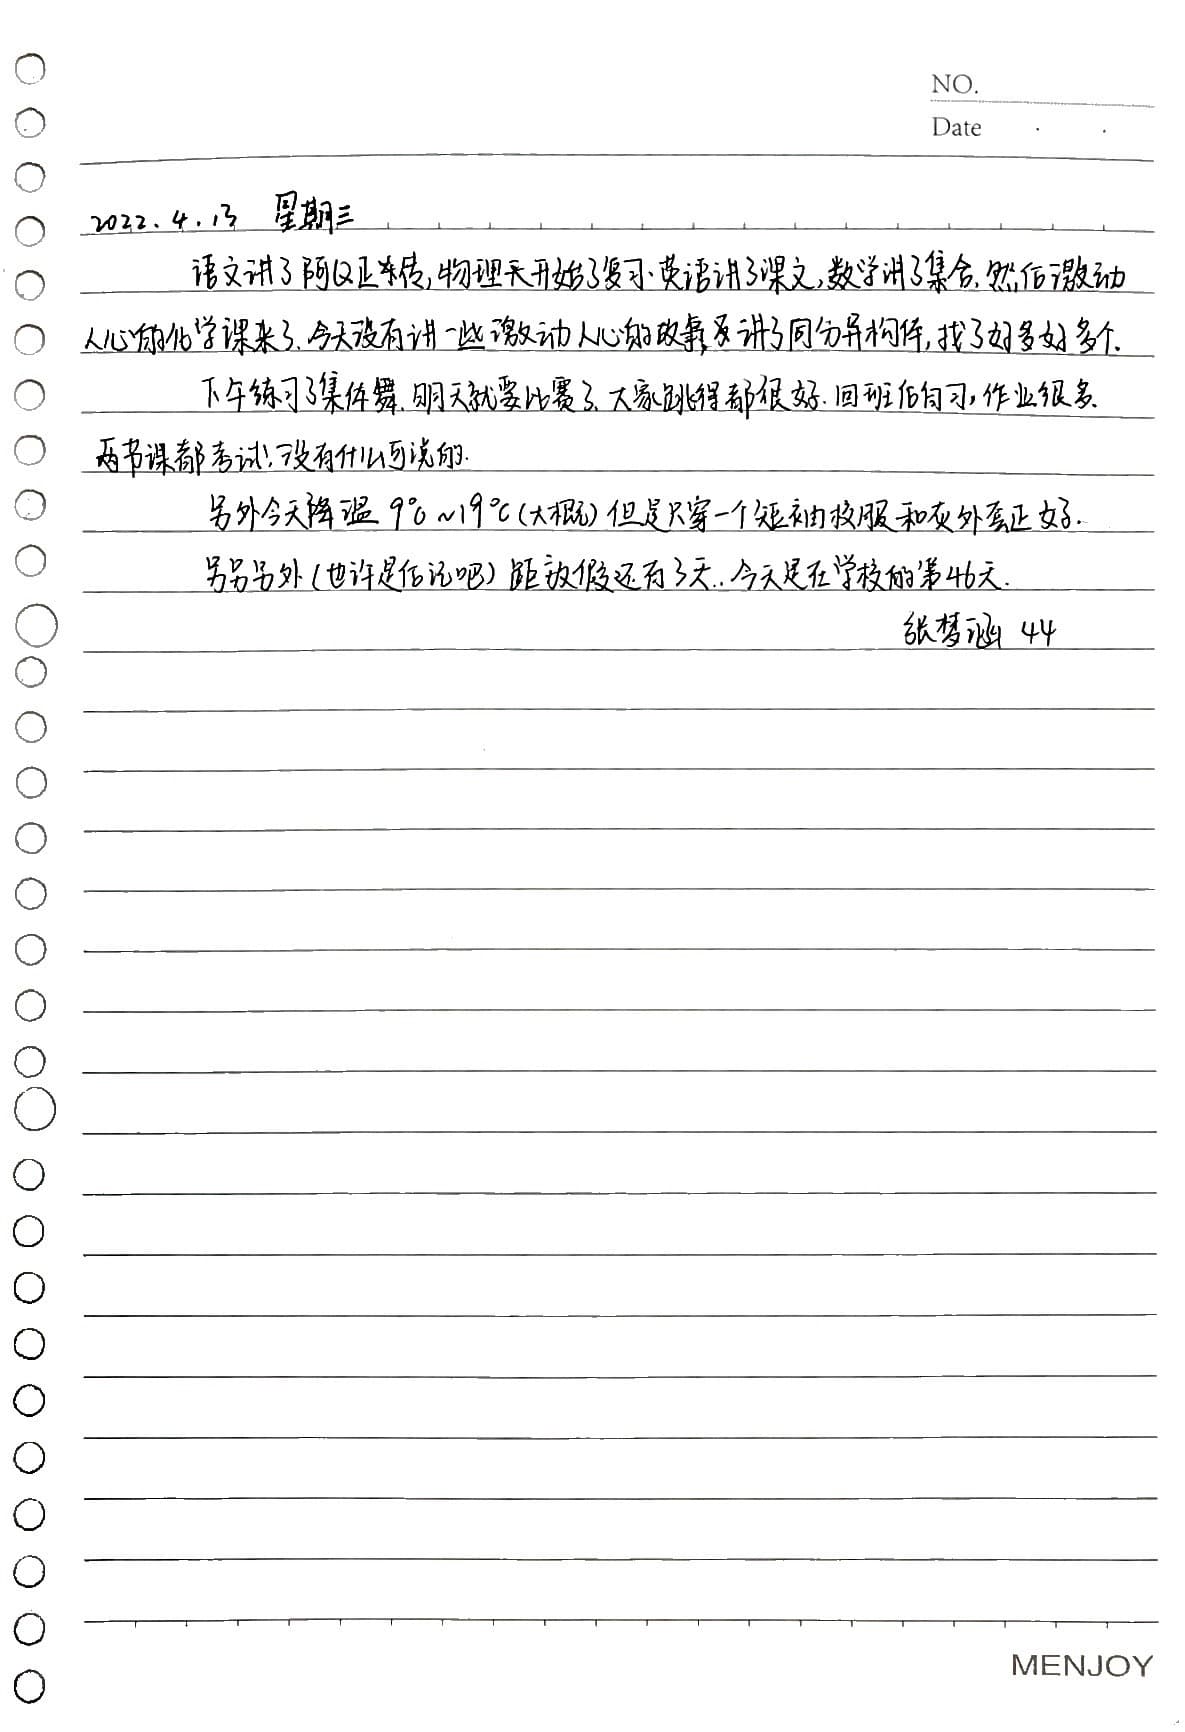 NO.
Date
2022.4.13 星期三
语文讲了阿Q正传,物理天开始了复习.英语讲了课文,数学讲了集合.然后激动
人心的化学课来了.今天没有讲一些激动人心的故事,讲了同分异构体,找了好多好多个.
下午练习了集体舞.明天就要比赛了.大家跳得都很好.回班后自习,作业很多.
两节课都考试!没有什么可说的.
另外今天降温 9℃~19℃(大概)但是只穿一个短袖校服和灰外套正好.
另另另外(也许是后记吧)距放假还有3天..今天是在学校的第46天.
张梦涵 44
MENJOY